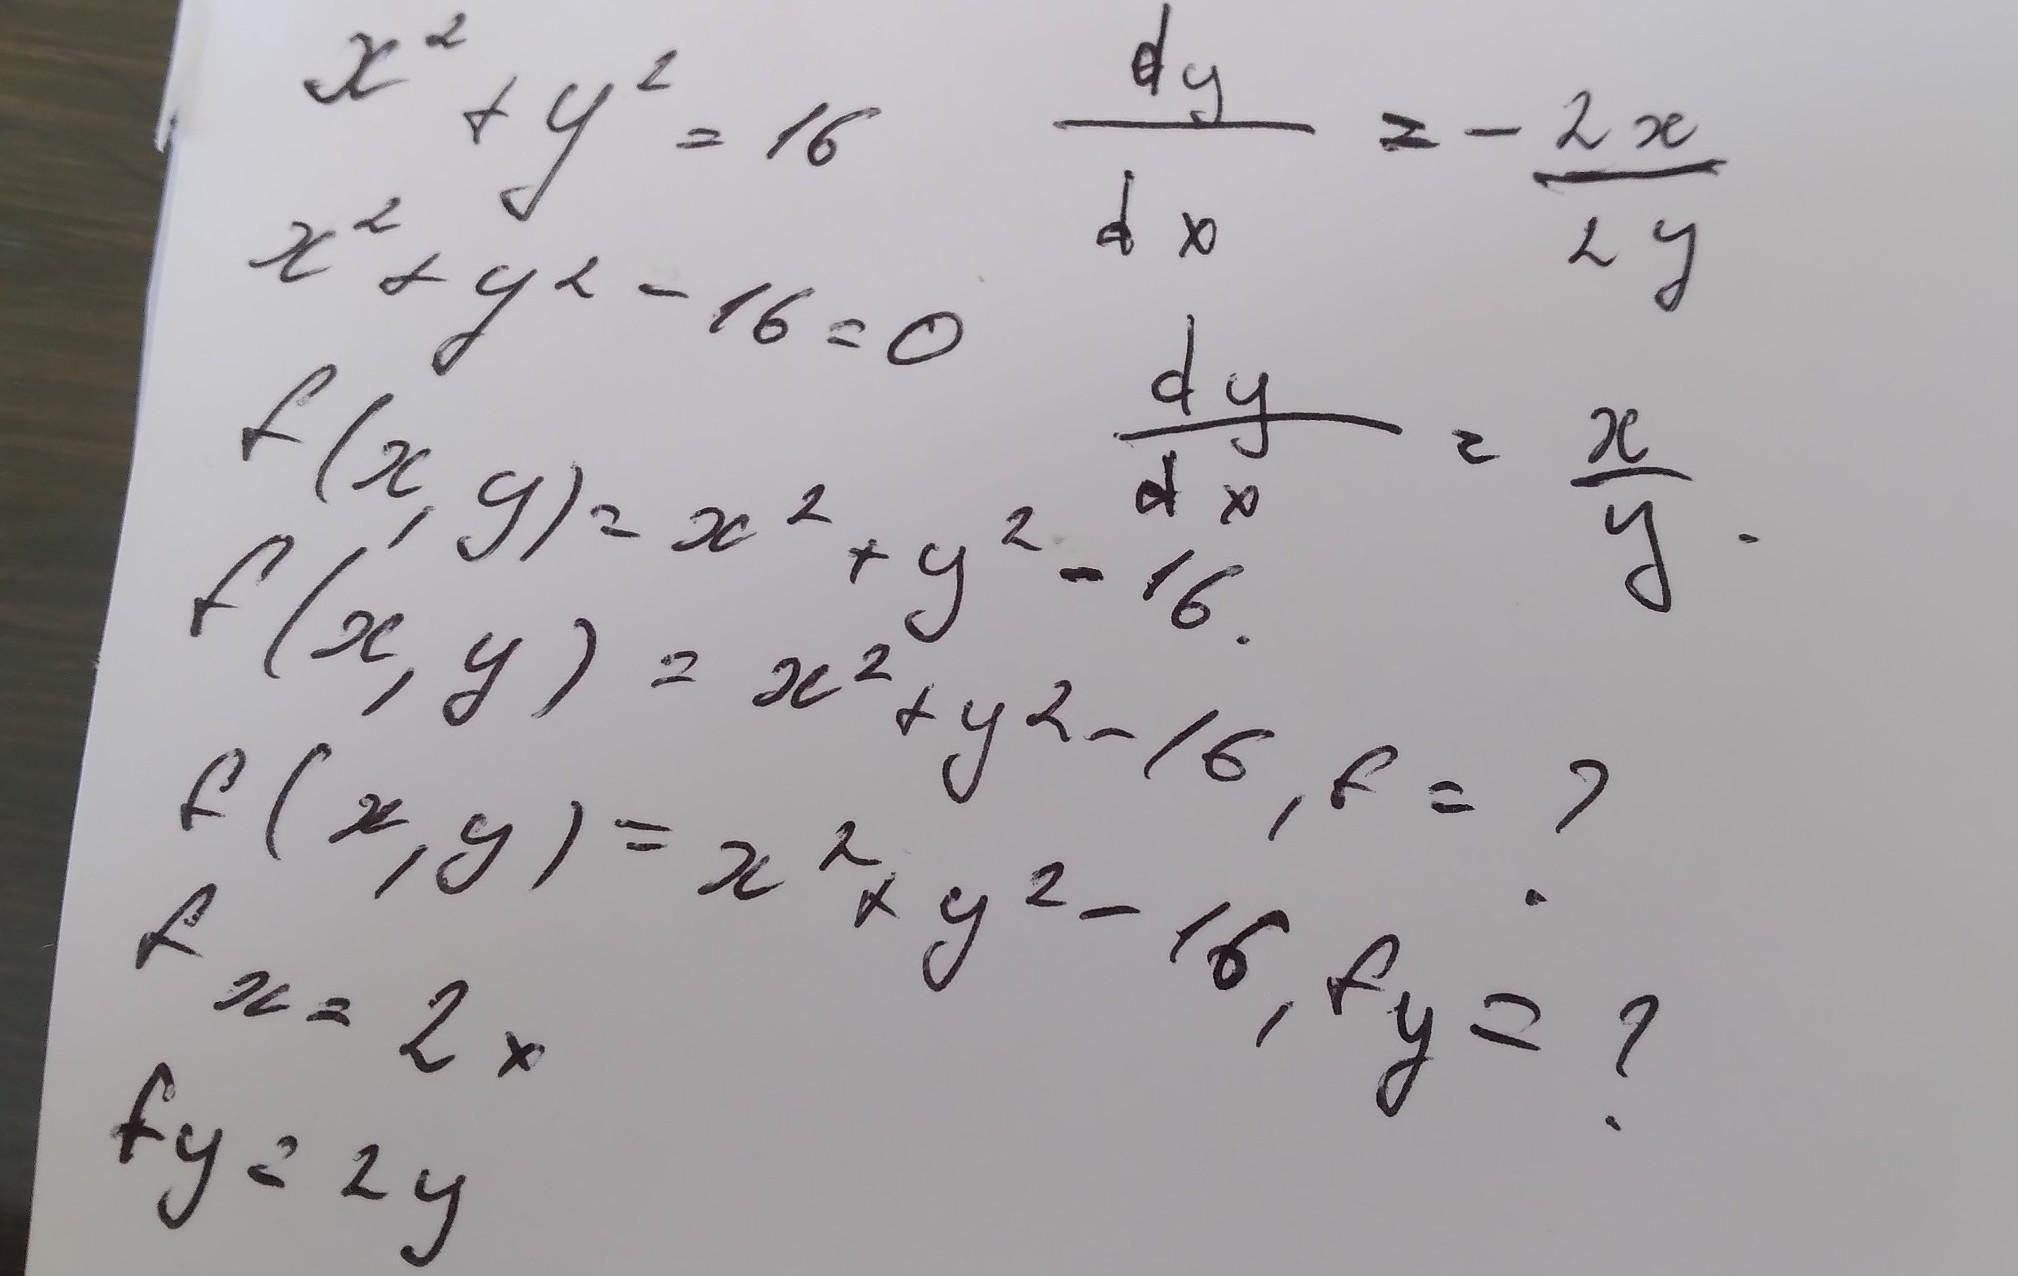 x² + y² = 16
x² + y² - 16 = 0
f(x, y) = x² + y² - 16.
f(x, y) = x² + y² - 16, f = ?
f(x, y) = x² + y² - 16, fy = ?
fx = 2x
fy = 2y
dy/dx = - 2x/2y
dy/dx = x/y.